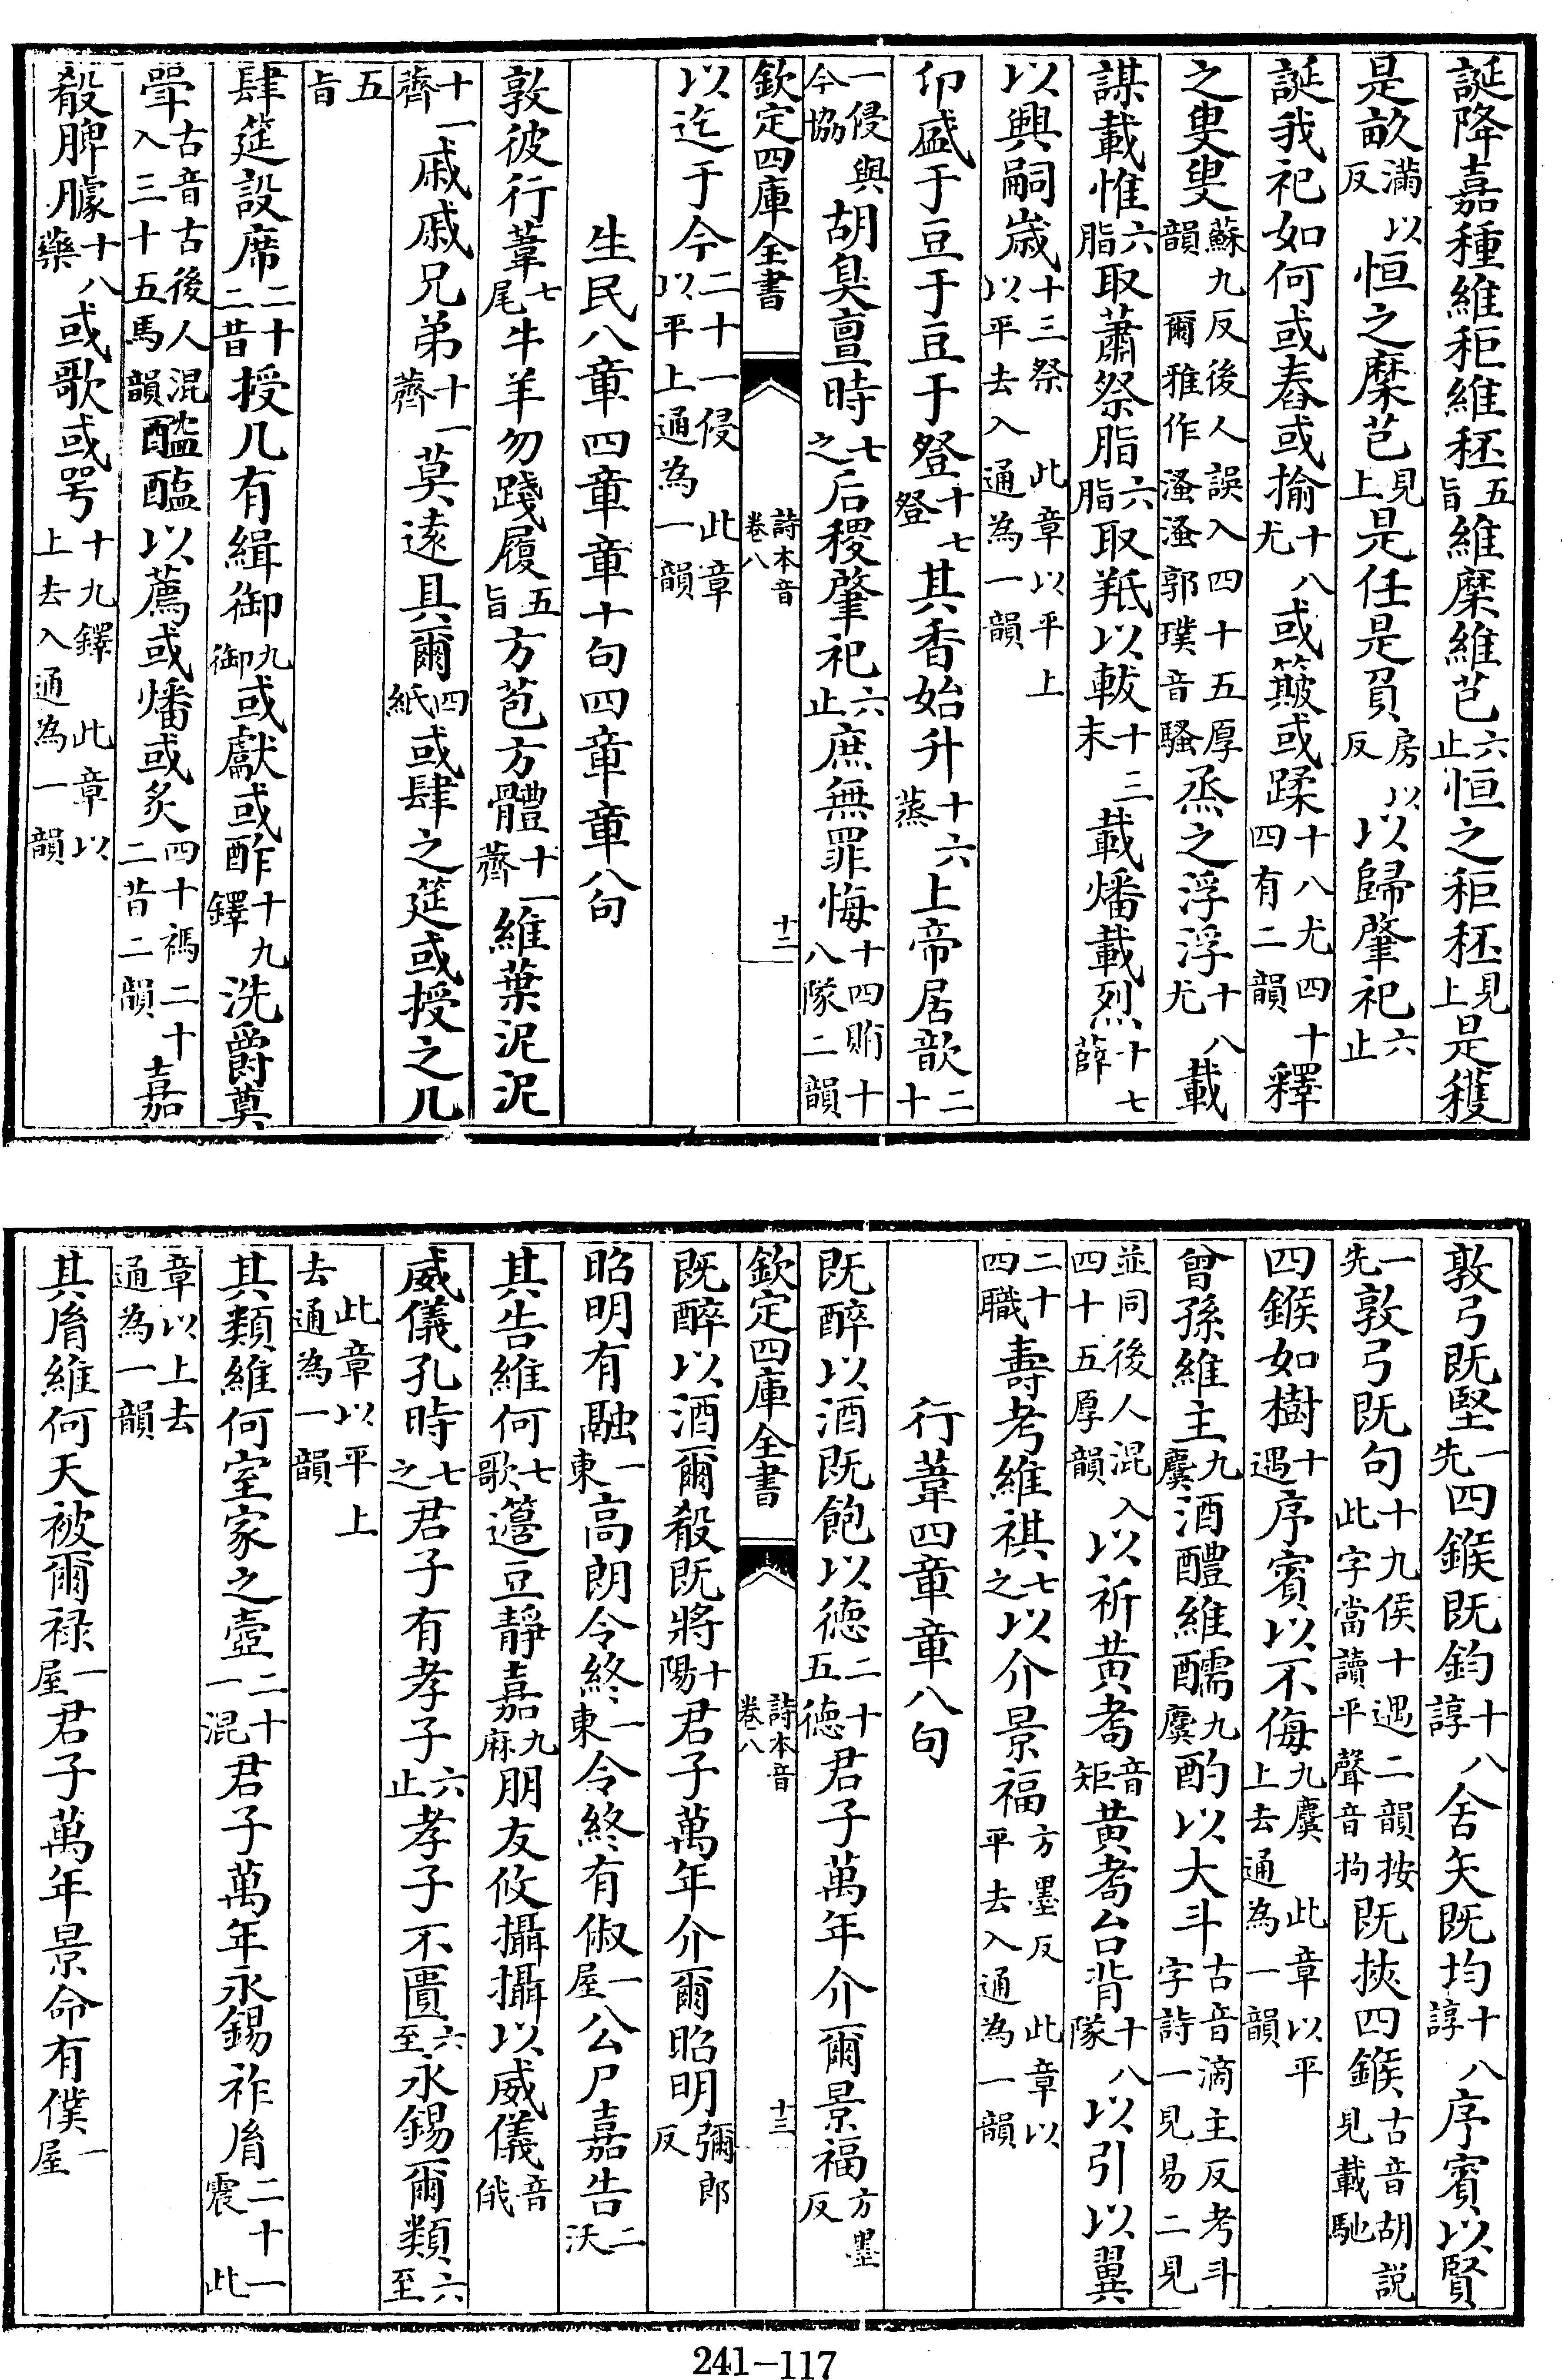 誕降嘉種維秬維秠五旨維穈維芑六止恒之秬秠見上是穫
是畝滿以反恒之穈芑見上是任是負房以反以歸肇祀六止
誕我祀如何或舂或揄十八尤或簸或蹂十八尤四十四有二韻釋
之叟叟蘇九反後人誤入四十五厚韻爾雅作溞溞郭璞音騷烝之浮浮十八尤載
謀載惟六脂取蕭祭脂六脂取羝以軷十三末載燔載烈十七薛
以興嗣歲十三祭此章以平上以平去入通為一韻
卬盛于豆于豆于登十七登其香始升十六蒸上帝居歆二十
一侵與今協胡臭亶時七之后稷肇祀六止庶無罪悔十四賄十八隊二韻
欽定四庫全書 詩本音卷八 十二
以迄于今二十一侵此章以平上通為一韻
生民八章四章章十句四章章八句
敦彼行葦七尾牛羊勿踐履五旨方苞方體十一薺維葉泥泥
十一薺戚戚兄弟十一薺莫遠具爾四紙或肆之筵或授之几
五旨
肆筵設席二十二昔授几有緝御九御或獻或酢十九鐸洗爵奠
斝古音古後人混入三十五馬韻醓醢以薦或燔或炙四十禡二十二昔二韻嘉
殽脾臄十八藥或歌或咢十九鐸此章以上去入通為一韻
敦弓既堅一先四鍭既鈞十八諄舍矢既均十八諄序賓以賢
一先敦弓既句十九侯十遇二韻按此字當讀平聲音拘既挾四鍭古音胡説見載馳
四鍭如樹十遇序賓以不侮九麌此章以平上去通為一韻
曾孫維主九麌酒醴維醹九麌酌以大斗古音滴主反考斗字詩一見易二見
並同後人混入四十五厚韻以祈黃耇音矩黃耇台背十八隊以引以翼
二十四職壽考維祺七之以介景福方墨反此章以平去入通為一韻
行葦四章章八句
既醉以酒既飽以德二十五德君子萬年介爾景福方墨反
欽定四庫全書 詩本音卷八 十三
既醉以酒爾殽既將十陽君子萬年介爾昭明彌郎反
昭明有融一東高朗令終一東令終有俶一屋公尸嘉告二沃
其告維何七歌籩豆靜嘉九麻朋友攸攝攝以威儀音俄
威儀孔時七之君子有孝子六止孝子不匱六至永錫爾類六至
此章以平上去通為一韻
其類維何室家之壼二十一混君子萬年永錫祚胤二十一震此
章以上去通為一韻
其胤維何天被爾祿一屋君子萬年景命有僕一屋
241-117